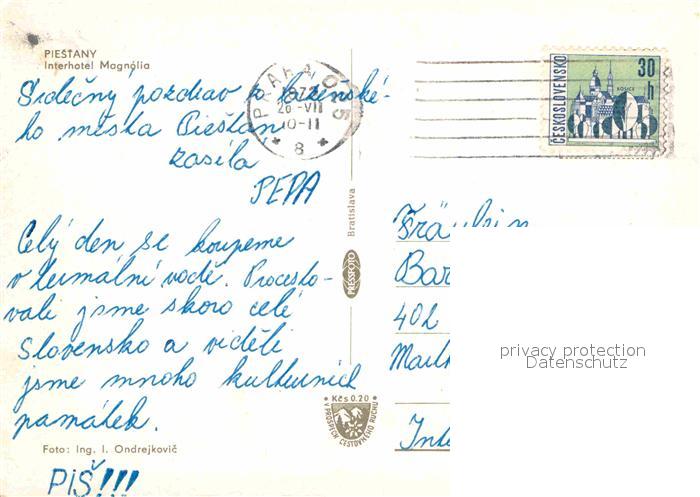 PIEŠŤANY
Interhotel Magnólia
Srdečný pozdrav z lázeňské-
ho města Piešťan
zasílá
PEPA
Celý den se koupeme
v termální vodě. Procesto-
vali jsme skoro celé
Slovensko a viděli
jsme mnoho kulturních
památek.
Foto: Ing. I. Ondrejkovič
PIŠ!!!
PRAHA 05
1972
26.-VII
10-11
8
ČESKOSLOVENSKO
30 h
KOŠICE
Bratislava
PRESSFOTO
Kčs 0.20
V PROSPECH CESTOVNÉHO RUCHU
Fräulein
Bar
402
privacy protection
Datenschutz